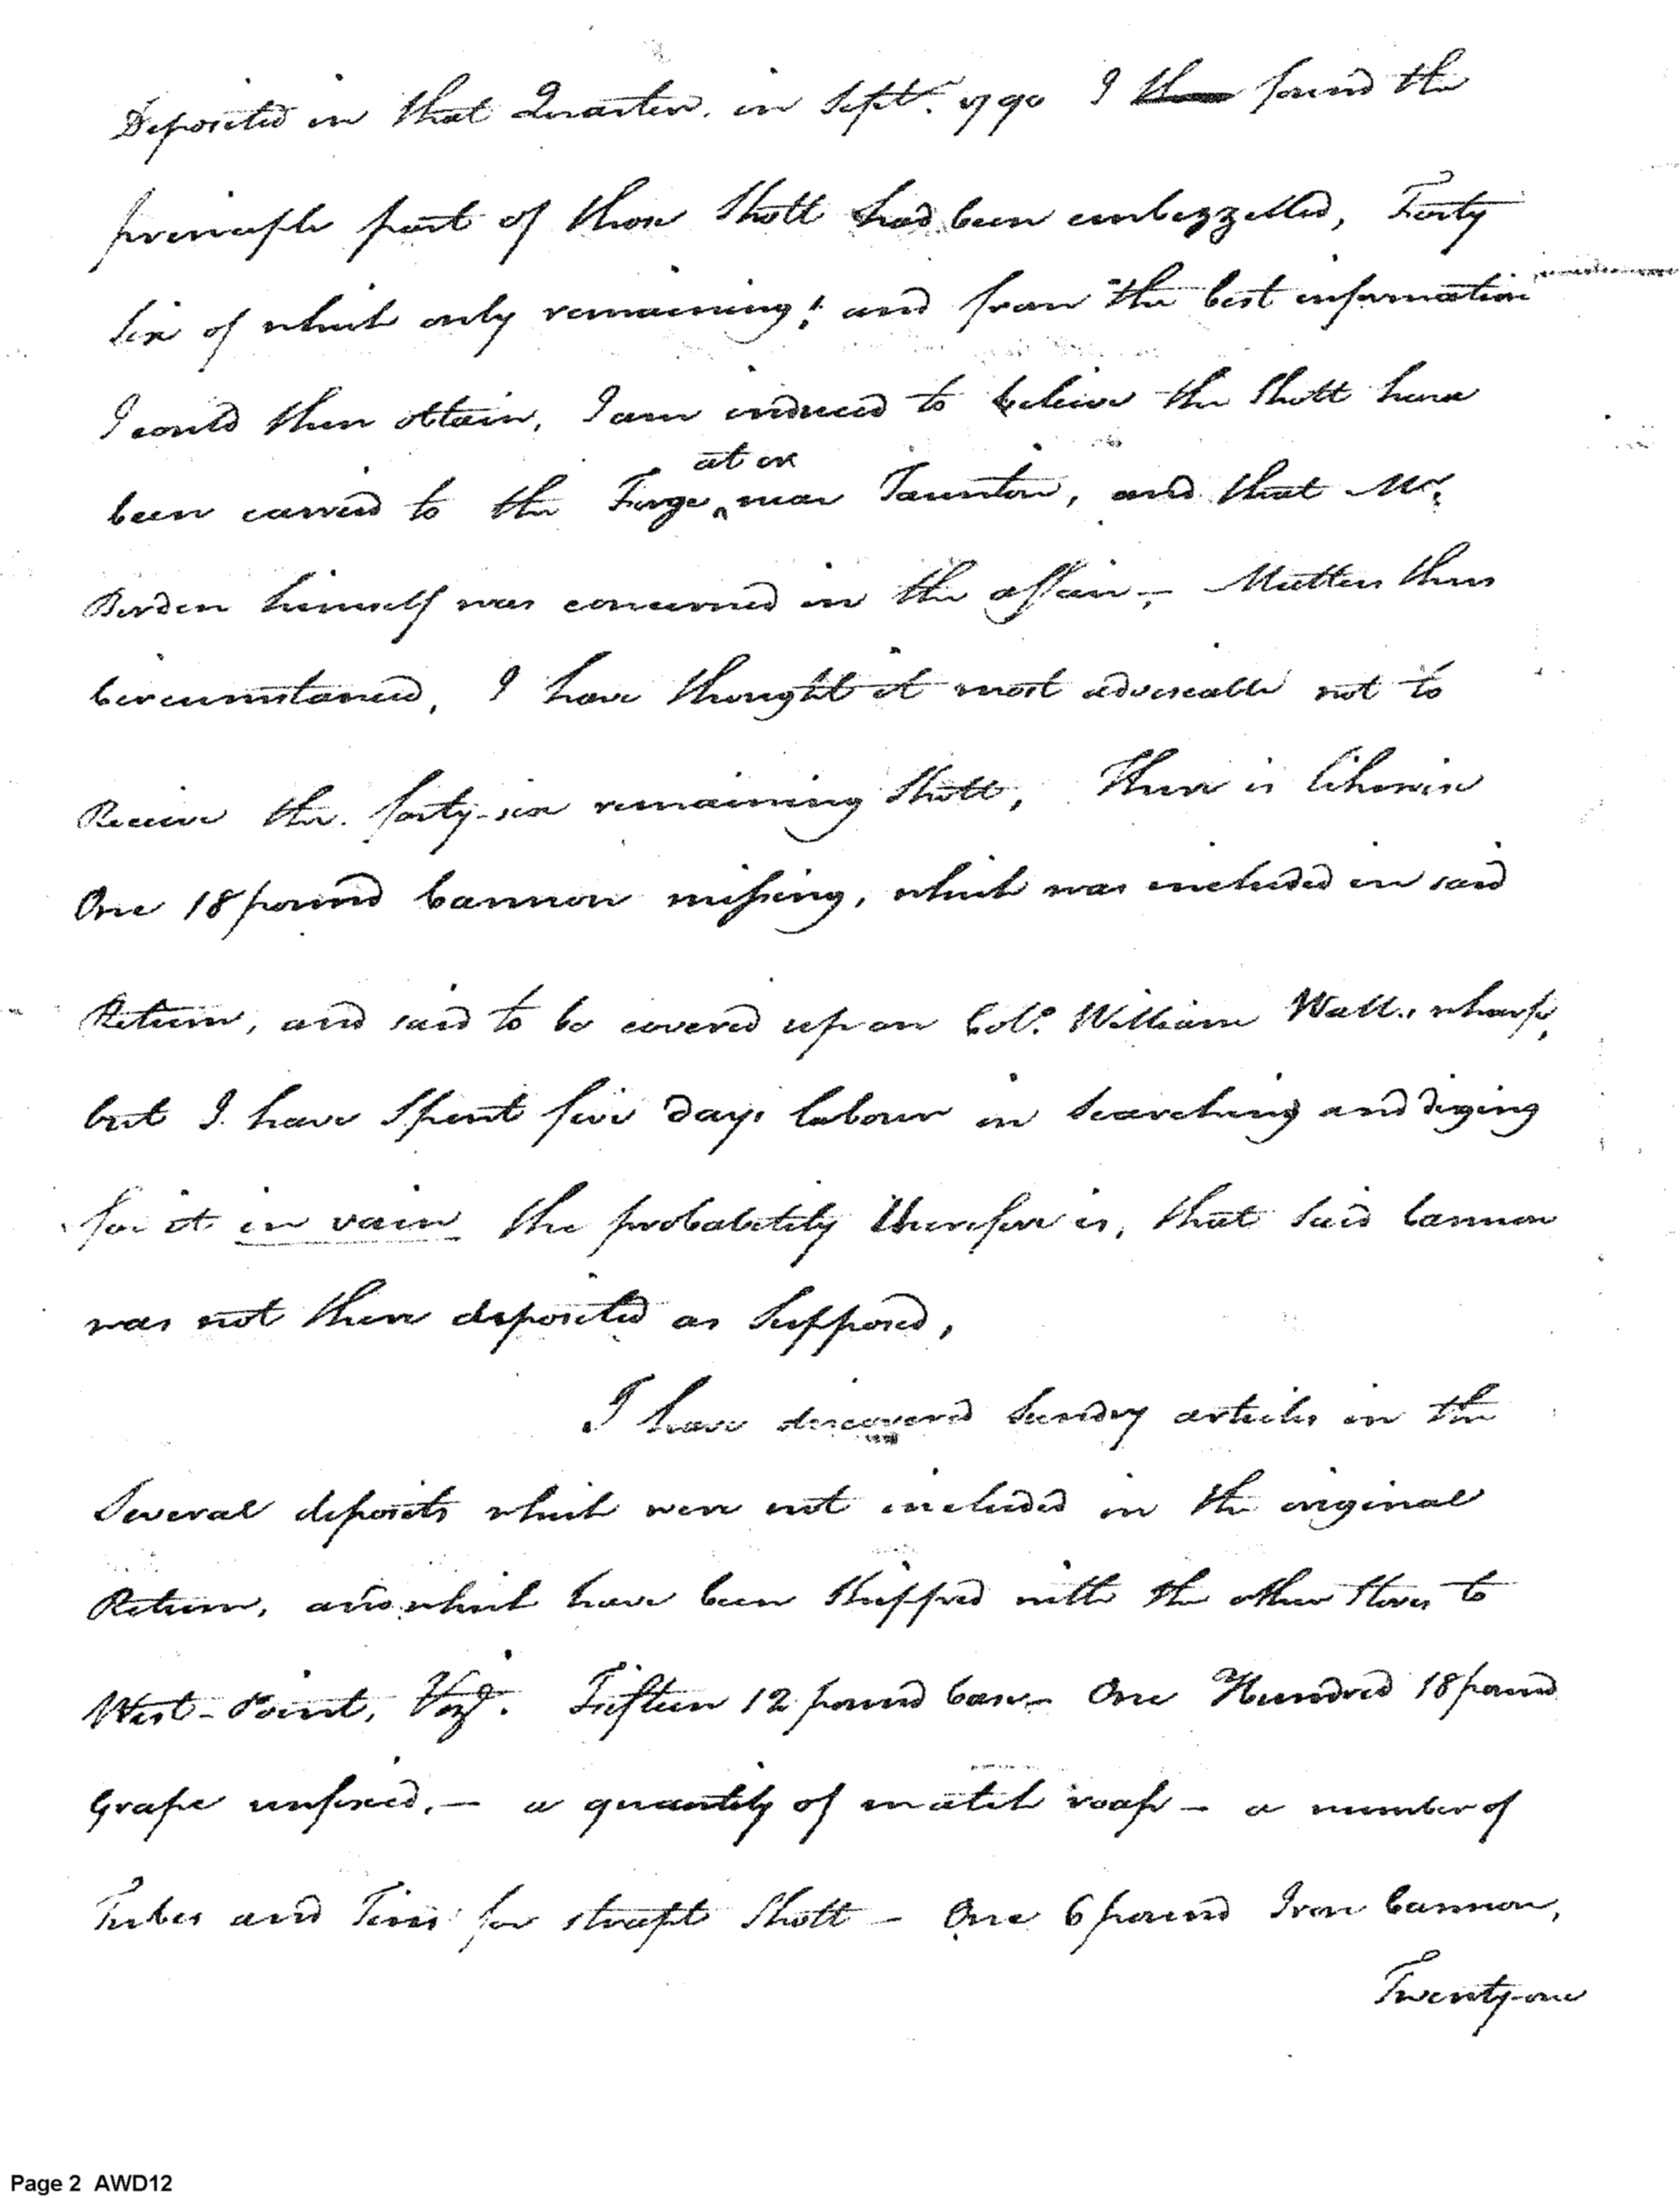 Deposited in that Quarter. in Sept.r 1790 I found the
principle part of those Shott had been embezzelled, Forty
six of which only remaining! and from the best information
I could then obtain, I am induced to believe the Shott have
been carried to the Forge at or near Taunton, and that Mr.
Borden himself was concerned in the affair,– Matters thus
Circumstanced, I have thought it most adviseable not to
Receive the forty-six remaining Shott, There is likewise
One 18 pound Cannon missing, which was included in said
Return, and said to be covered up on Col.o William Walls wharf,
but I have Spent five days labour in Searching and diging
for it in vain the probability therefore is, that Said Cannon
was not there deposited as Supposed,
I have discovered Sundry articles in the
Several deposits which were not included in the original
Return, and which have been Shipped with the other Stores to
West-Point, Vizt. Fifteen 12 pound Case– One Hundred 18 pound
Grape unfixed,– a quantity of match roap – a number of
Tubes and Tins for strapt Shott – One 6 pound Iron Cannon,
Twenty-one
Page 2 AWD12